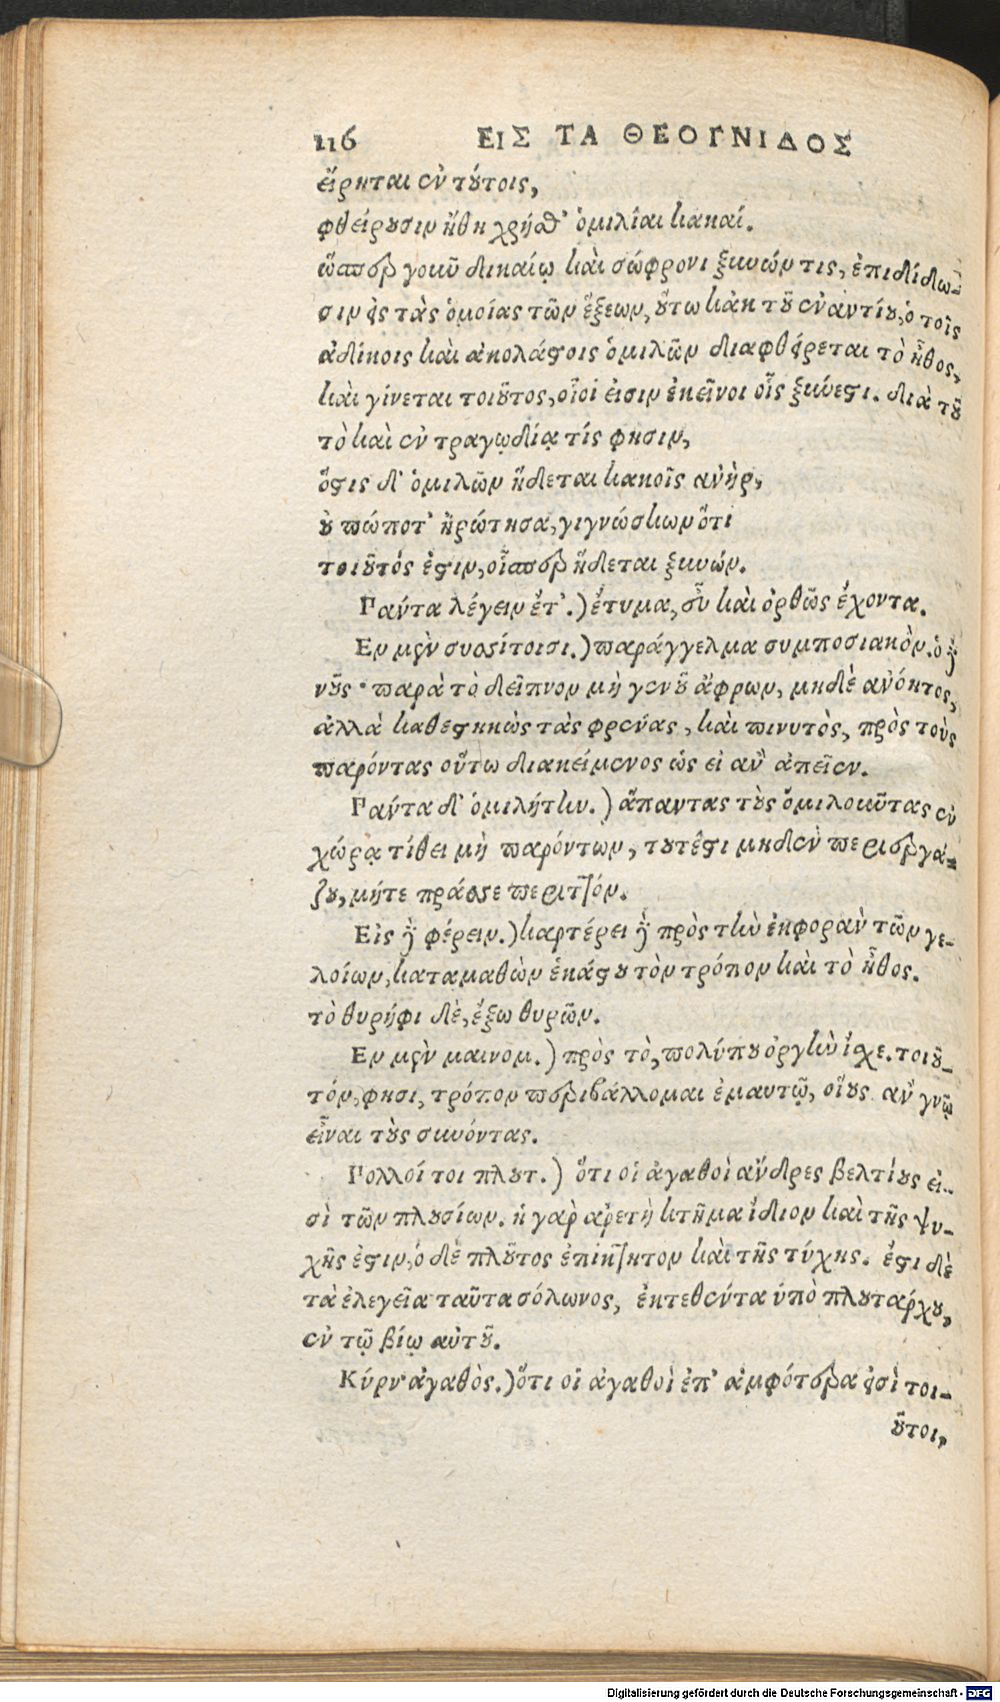 116 ΕΙΣ ΤΑ ΘΕΟΓΝΙΔΟΣ
εἴρηται ἐν τούτοις,
φθείρουσιν ἤθη χρήσθ' ὁμιλίαι κακαί.
ὥσπερ γοιῦ δικαίῳ καὶ σώφρονι ξυνών τις, ἐπιδίδω-
σιν εἰς τὰς ὁμοίας τῶν ἕξεων, οὕτω κἀκ τοῦ ἐναντίου, ὁ τοῖς
ἀδίκοις καὶ ἀκολάστοις ὁμιλῶν διαφθείρεται τὸ ἦθος,
καὶ γίνεται τοιοῦτος, οἷοί εἰσιν ἐκεῖνοι οἷς ξύνεστι. διὰ τοῦ
τὸ καὶ ἐν τραγῳδίᾳ τίς φησιν,
ὅστις δ' ὁμιλῶν ἥδεται κακοῖς ἀνὴρ,
οὐ πώποτ' ἠρώτησα, γιγνώσκων ὅτι
τοιοῦτός ἐστιν, οἷσπερ ἥδεται ξυνών.
Γαύτα λέγειν ἔτ'.) ἔτυμα, οὖ καὶ ὀρθῶς ἔχοντα.
Εν μὲν συσσίτοισι.) παράγγελμα συμποσιακὸν. ὁ δὲ
νοῦς· παρὰ τὸ δεῖπνον μὴ γενοῦ ἄφρων, μηδὲ ἀνόητος,
ἀλλὰ καθεστηκὼς τὰς φρένας, καὶ πινυτὸς, πρὸς τοὺς
παρόντας οὕτω διακείμενος ὡς εἰ ἀν ἀπεῖεν.
Γάντα δ' ὁμιλήτην.) ἅπαντας τοὺς ὁμιλοιῦτας ἐν
χώρᾳ τίθει μὴ παρόντων, τουτέστι μηδὲν περιεργά-
ζου, μήτε πράσσε περιττόν.
Εἰς δὲ φέρειν.) καρτέρει δὲ πρὸς τὴν ἐκφορὰν τῶν γε-
λοίων, καταμαθὼν ἑκάστου τὸν τρόπον καὶ τὸ ἦθος.
τὸ θυρήφι δὲ, ἔξω θυρῶν.
Εν μὲν μαινομ.) πρὸς τὸ, πολύπου ὀργὴν ἴσχε. τοιοῦ-
τόν, φησι, τρόπον περιβάλλομαι ἐμαυτῷ, οἵους ἀν γνῶ
εἶναι τοὺς συνόντας.
Γολλοί τοι πλουτ.) ὅτι οἱ ἀγαθοὶ ἄνδρες βελτίους εἰ-
σὶ τῶν πλουσίων. ἡ γὰρ ἀρετὴ κτῆμα ἴδιον καὶ τῆς ψυ-
χῆς ἐστιν, ὁ δὲ πλοῦτος ἐπίκτητον καὶ τῆς τύχης. ἔστι δὲ
τὰ ἐλεγεῖα ταῦτα σόλωνος, ἐκτεθέντα ὑπὸ πλουτάρχου,
ἐν τῷ βίῳ αὐτοῦ.
Κύρν' ἀγαθὸς.) ὅτι οἱ ἀγαθοὶ ἐπ' ἀμφότερα εἰσὶ τοι-
οῦτοι,
Digitalisierung gefördert durch die Deutsche Forschungsgemeinschaft - DFG